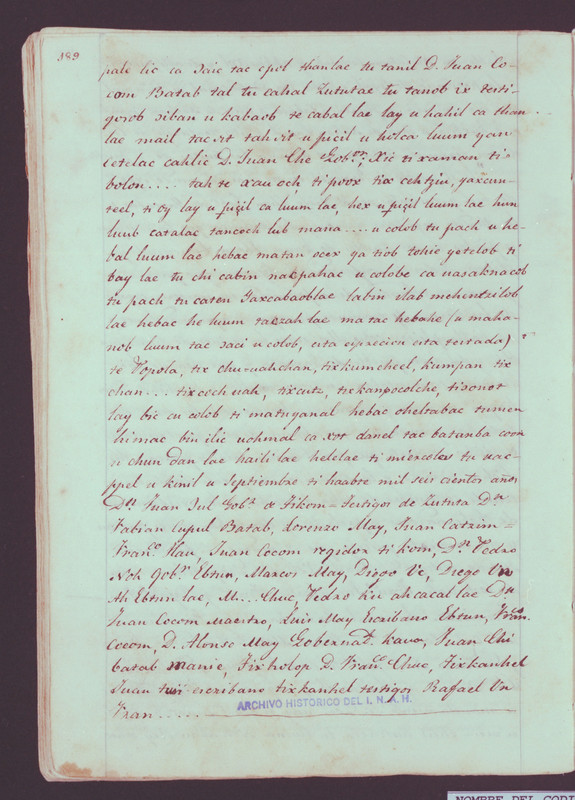 189
pale lic ca saic tac cpol than lae tu tanil D. Juan Co-
com Batab tal tu cahal Zututae tu tanob ix testi-
gosob siban u kabaob te cabal lae lay u hahil ca than
lae mail tac vit tah vit u picil u holca luum yan
Cetelac cahlic D. Juan Che Gobor, Xic ti xaman ti
bolon .... tah te xau och, ti poox tix cehtziu, yaxcun-
teel, ti oy lay u picil ca luum lae, hex u picil luum lae hun
luub catalac tancoch lub mana .... u colob tu pach u he-
bal luum lae hebac matan ocex ya tiob tohie yetelob ti
bay lae tu chi cabin nacpahac u colobe ca uasaknacob
tu pach tu caten Yaxcabaoblae labin ilab mehentzilob
lae hebac he luum taczah lae ma tac hebahe (u maha-
nob luum tac saci u colob, esta esprecien esta testada)
te Popola, tix chuuahchan, tixkumcheel, kumpan tix
chan ... tixcoch uah, tixcutz, tixkanpocolche, tixonot
lay bic cu colob ti matuyanal hebac oheltabac tumen
himac bin ilic uohmal ca xot danel tac batunba coon
u chun dan lae haili lae helelae ti miercoles tu uac-
ppel u kinil u Septiembre ti haabre mil seis cientos años
Dn Juan Sul Gobr de Tikom = Testigos de Zututa Dn
Fabian Cupul Batab, Lorenzo May, Juan Catzim =
Franco Hau, Juan Cocom regidor ti kom, Dn Pedro
Noh Gobr Ebtun, Marcos May, Diego Uc, Diego Un
Ah Ebtun lae, M... Chuc, Pedro Ku ah cacal lae Dn
Juan Cocom Maestro, Luis May Escribano Ebtun, Franco
Cocom, D. Alonso May Gobernad. kaua, Juan Chi
batab manie, Tixholop D. Franco Chuc, Tixkanhel
Juan tuii escribano tixkanhel testigos Rafael Un
Fran .....
ARCHIVO HISTORICO DEL I. N. A. H.
NOMBRE DEL CODI